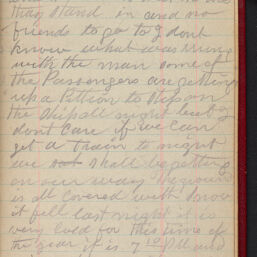 than stand in and no
friends to go to I dont
know what was wrong
with the man some of
the Passengers are getting
up a Pittion to
the night but I
dont care if we can
get a train to night
we shall be getting
on our way the ground
is all covered with snow
it fell last night it is
very cold for this time of
the year it is 7 10 P.M and